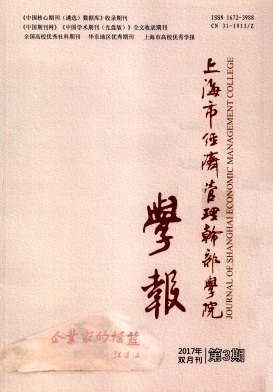 《中国核心期刊（遴选）数据库》收录期刊
《中国期刊网》《中国学术期刊（光盘版）》全文收录期刊
全国高校优秀社科期刊 华东地区优秀期刊 上海市高校优秀学报
ISSN 1672-3988
CN 31-1913/Z
上海市經濟管理幹部學院
JOURNAL OF SHANGHAI ECONOMIC MANAGEMENT COLLEGE
學報
企业家的摇篮
2017年
双月刊
第3期